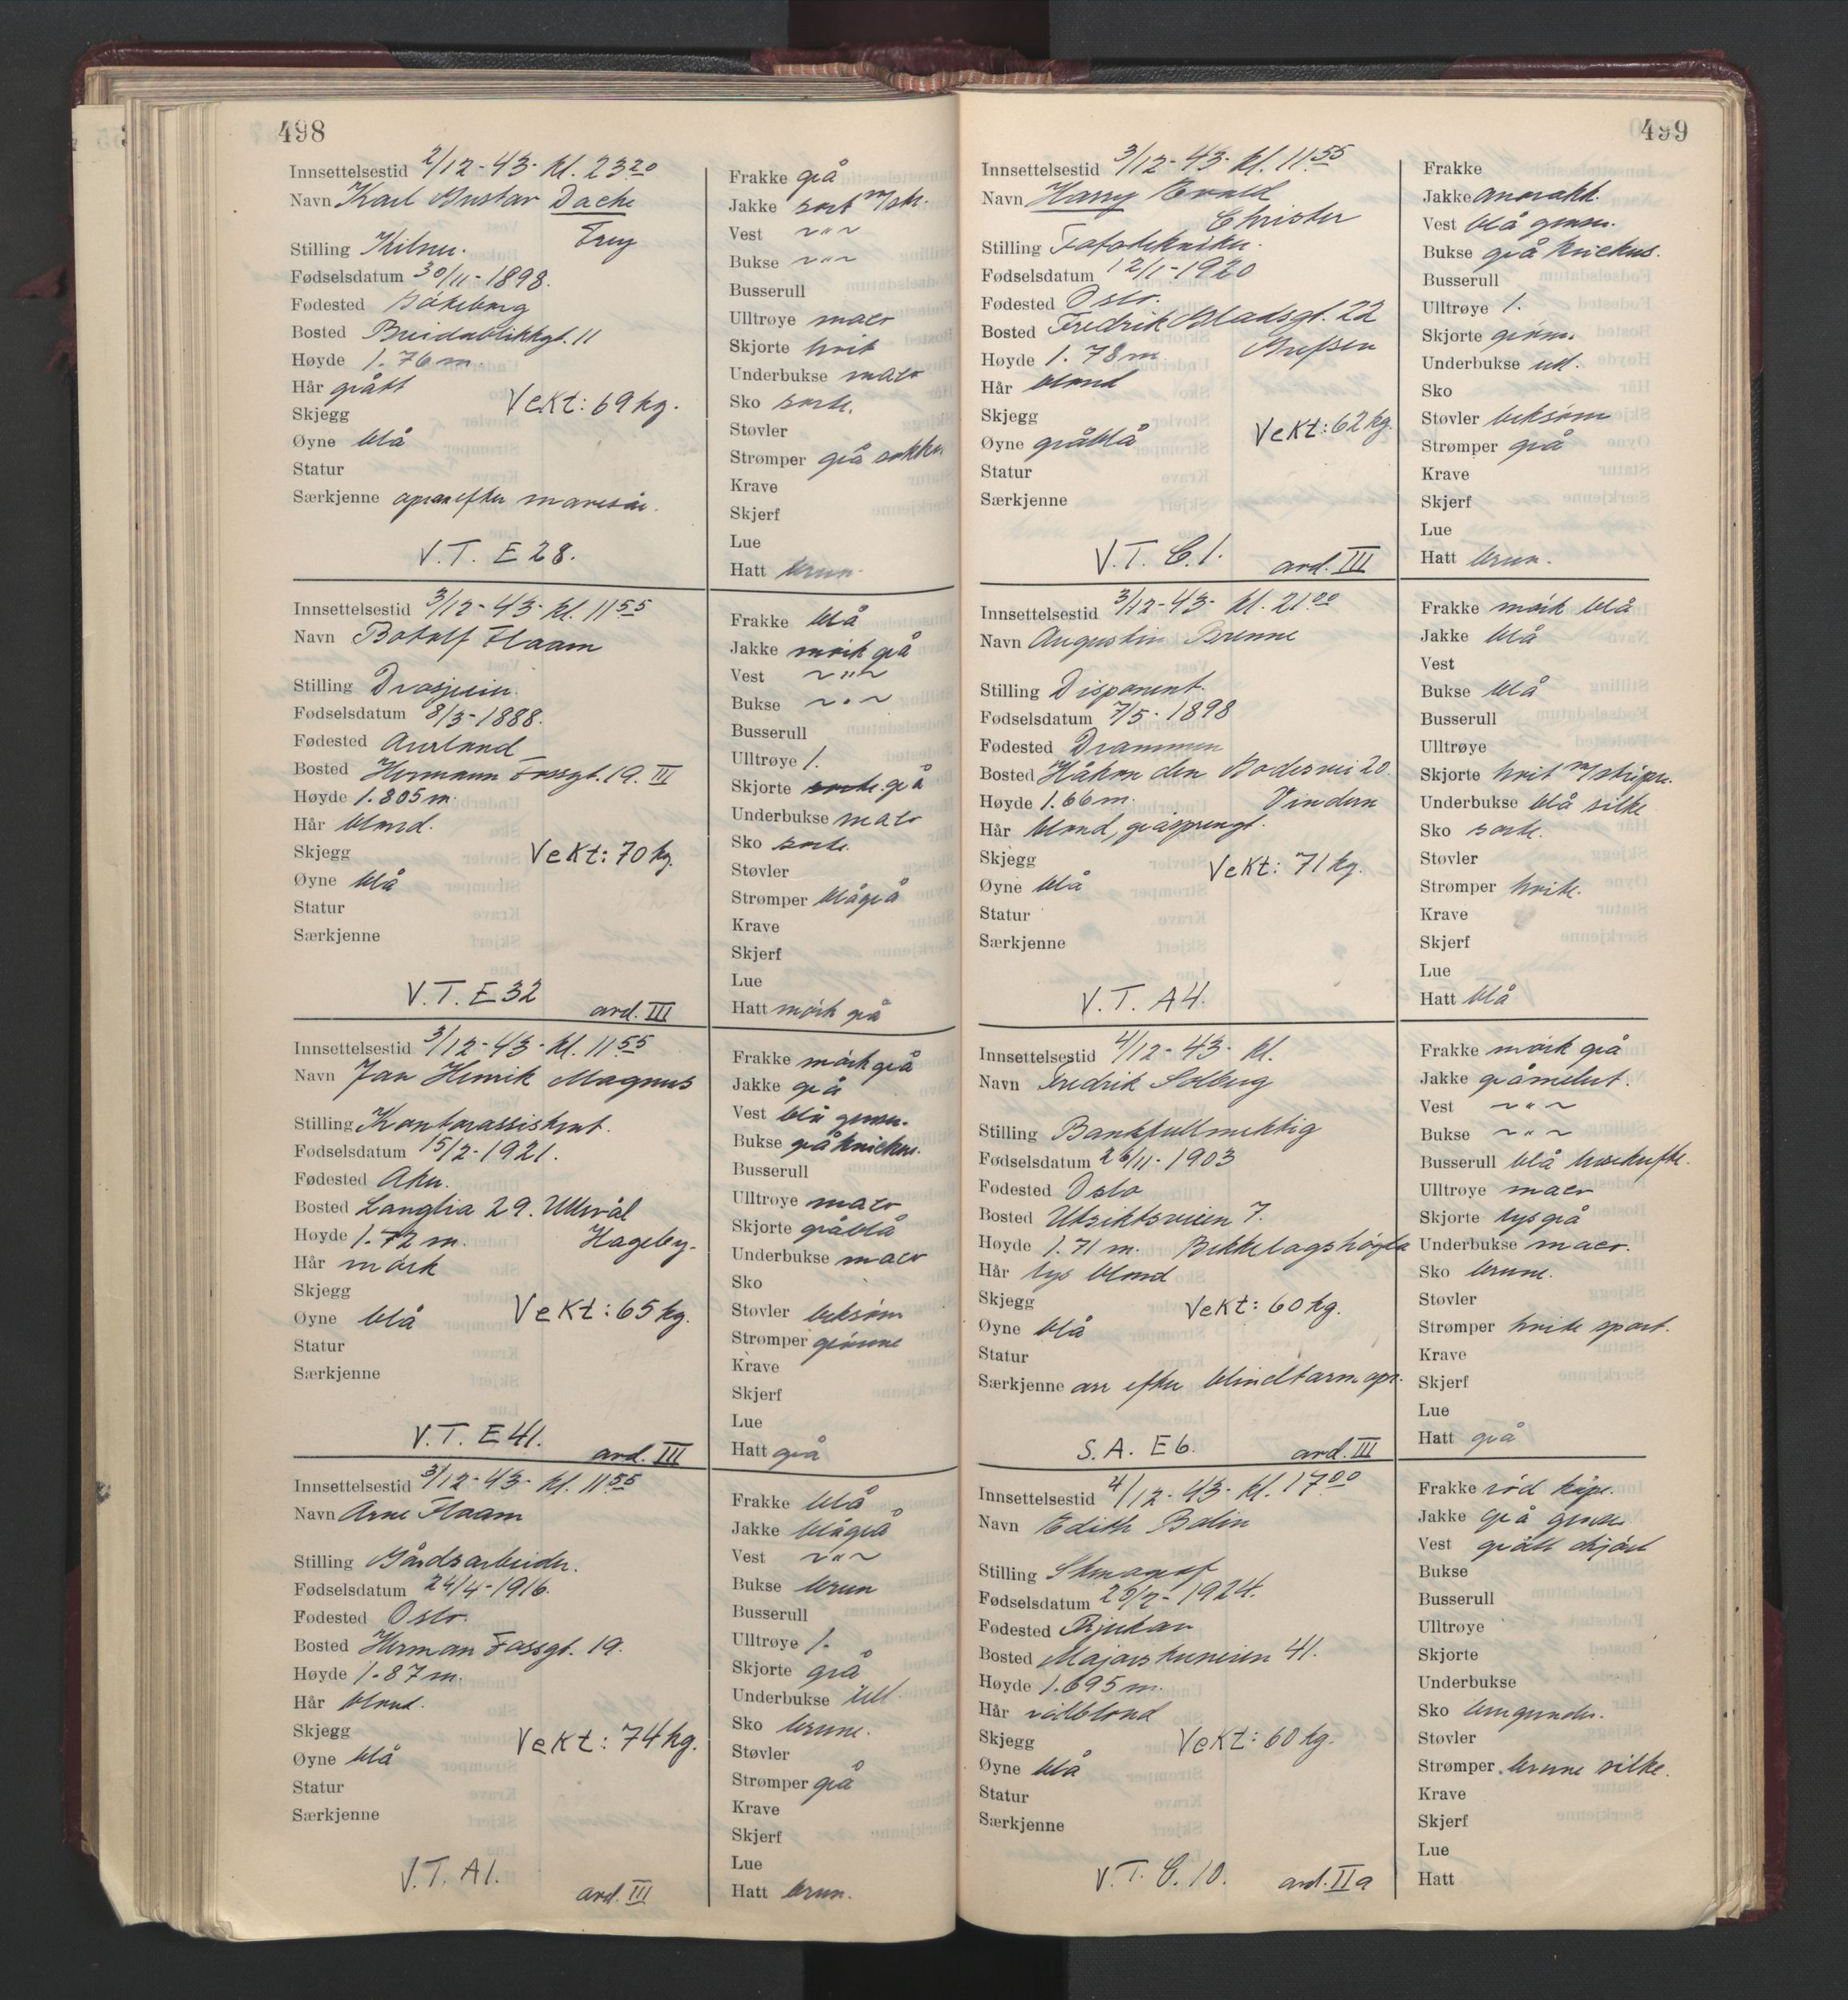 498
Innsettelsestid 2/12-43- kl. 23 20
Navn Karl Gustav Dache
Frey
Stilling Kelner.
Fødselsdatum 30/11-1898.
Fødested Göteborg
Bosted Breidablikkgt. 11
Høyde 1.76 m.
Hår grått
Vekt: 69 kg.
Skjegg
Øyne blå
Statur
Særkjenne efter mavesår.
V.T. E 28.
Frakke grå
Jakke sort m/str.
Vest ~"~
Bukse ~"~
Busserull
Ulltrøye maco
Skjorte hvit
Underbukse maco
Sko sorte.
Støvler
Strømper grå sokker
Krave
Skjerf
Lue
Hatt brun.
Innsettelsestid 3/12-43- kl. 11 55
Navn Botolf Flaam
Stilling
Fødselsdatum 8/3-1888.
Fødested Aurland
Bosted Hermann Fossgt. 19. III
Høyde 1.805 m.
Hår blond.
Skjegg
Vekt: 70 kg.
Øyne blå
Statur
Særkjenne
V.T. E 32
avd. III
Frakke blå
Jakke mörk grå
Vest ~"~
Bukse ~"~
Busserull
Ulltrøye 1.
Skjorte grå
Underbukse maco
Sko sorte.
Støvler
Strømper blågrå
Krave
Skjerf
Lue
Hatt mörk grå
Innsettelsestid 3/12-43- kl. 11 55
Navn Jan Henrik Magnus
Stilling Kontorassistent.
Fødselsdatum 15/2-1921.
Fødested Aker.
Bosted Langlia 29. Ullevål
Hageby.
Høyde 1.72 m.
Hår mörk
Skjegg
Vekt: 65 kg.
Øyne blå
Statur
Særkjenne
V.T. E 41.
avd. III
Frakke mörk grå
Jakke grå
Vest blå genser.
Bukse grå knickers.
Busserull
Ulltrøye maco
Skjorte gråblå
Underbukse maco
Sko
Støvler beksöm
Strømper grönne
Krave
Skjerf
Lue
Hatt grå
Innsettelsestid 3/12-43- kl. 11 55
Navn Arne Flaam
Stilling Gårdsarbeider.
Fødselsdatum 24/4-1916.
Fødested Oslo.
Bosted Herman Fossgt. 19.
Høyde 1.87 m.
Hår blond.
Skjegg
Vekt: 74 kg.
Øyne blå
Statur
Særkjenne
V.T. A 1.
avd. III
Frakke blå
Jakke blågrå
Vest ~"~
Bukse brun
Busserull
Ulltrøye 1.
Skjorte grå
Underbukse ull.
Sko brune.
Støvler
Strømper grå
Krave
Skjerf
Lue
Hatt brun.
499
Innsettelsestid 3/12-43- kl. 11 55
Navn Harry Evald
Christer
Stilling Fototekniker.
Fødselsdatum 12/1-1920
Fødested Oslo.
Bosted Fredrik Gladsgt. 22
Grefsen
Høyde 1.78 m.
Hår blond
Skjegg
Vekt: 62 kg.
Øyne gråblå
Statur
Særkjenne
V.T. C.1.
avd. III
Frakke
Jakke anorakk.
Vest blå genser.
Bukse grå knickers.
Busserull
Ulltrøye 1.
Skjorte grönn.
Underbukse ull.
Sko
Støvler beksöm
Strømper grå
Krave
Skjerf
Lue
Hatt brun.
Innsettelsestid 3/12-43- kl. 21 00
Navn Augustin Brenne
Stilling Disponent.
Fødselsdatum 7/5-1898
Fødested Drammen
Bosted Håkon den Godesvei 20.
Vinderen
Høyde 1.66 m.
Hår blond, gråsprengt.
Skjegg
Vekt: 71 kg.
Øyne blå
Statur
Særkjenne
V.T. A 4.
Frakke mörk blå
Jakke blå
Vest
Bukse blå
Busserull
Ulltrøye
Skjorte hvit m/striper.
Underbukse blå silke
Sko sorte.
Støvler
Strømper hvite.
Krave
Skjerf
Lue
Hatt blå
Innsettelsestid 4/12-43- kl.
Navn Fredrik Solberg
Stilling Bankfullmektig
Fødselsdatum 26/11-1903
Fødested Oslo
Bosted Utsiktsveien 7.
Bekkelagshögda
Høyde 1.71 m.
Hår lys blond
Skjegg
Vekt: 60 kg.
Øyne blå
Statur
Særkjenne arr efter blindtarm opr.
S.A. E 6.
avd. III
Frakke mörk grå
Jakke gråmelert.
Vest ~"~
Bukse ~"~
Busserull blå
Ulltrøye maco
Skjorte lysgrå
Underbukse maco.
Sko brune.
Støvler
Strømper hvite sport.
Krave
Skjerf
Lue
Hatt grå
Innsettelsestid 4/12-43- kl. 17 00
Navn Edith Bolin
Stilling Stenograf
Fødselsdatum 1924.
Fødested Rjukan
Bosted Majorstuveien 41.
Høyde 1.695 m.
Hår rödblond
Skjegg
Vekt: 60 kg.
Øyne blå
Statur
Særkjenne
V.T. C. 10.
avd. II a
Frakke röd kåpe.
Jakke grå genser
Vest grått skjört
Bukse
Busserull
Ulltrøye
Skjorte
Underbukse
Sko burgunder.
Støvler
Strømper brune silke.
Krave
Skjerf
Lue
Hatt